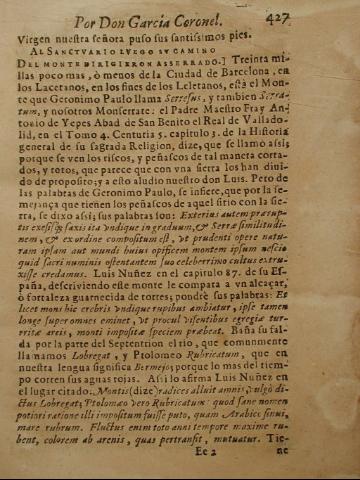 Por Don Garcia Coronel. 427
Virgen nuestra señora puso sus santissimos pies.
AL SANCTVARIO LVEGO SV CAMINO
DEL MONTE DIRIGIERON ASSERRADO.] Treinta mi-
llas poco mas, ò menos de la Ciudad de Barcelona, en
los Lacetanos, en los fines de los Leletanos, està el Mon
te que Geronimo Paulo llama Serresus, y tambien Serra-
tum, y nosotros Monserrate: el Padre Maestro Fray An-
tonio de Yepes Abad de San Benito el Real de Vallado-
lid, en el Tomo 4. Centuria 5. capitulo 3. de la Historia
general de su sagrada Religion, dize, que se llamò assi;
porque se ven los riscos, y peñascos de tal manera corta-
dos, y rotos, que parece que con vna sierra los han diui-
do de proposito; y a esto aludio nuestro don Luis. Pero de
las palabras de Geronimo Paulo, se infiere, que por la se-
mejança que tienen los peñascos de aquel sitio con la sie-
rra, se dixo assi; sus palabras son: Exterius autem prærup-
tis exesisq; saxis ita vndique in graduum, & Serræ similitudi-
nem, & ex ordine compositum est, vt prudenti opere natu-
ram ipsam aut mundi huius opificem montem ipsum nescio
quid sacri numinis ostentantem suo celeberrimo cultus extru-
xisse credamus. Luis Nuñez en el capitulo 87. de su Es-
paña, descriviendo este monte le compara a vn alcaçar,
ò fortaleza guarnecida de torres; pondrè sus palabras: Et
licet mons hic crebris vndique rupibus ambiatur, ipse tamen
longe super omnes eminet, vt procul visentibus egregiæ tur-
ritæ arcis, monti impositæ speciem præbeat. Baña su fal-
da por la parte del Septentrion el rio, que comunmente
llamamos Lobregat, y Ptolomeo Rubricatum, que en
nuestra lengua significa Bermejo; porque lo mas del tiem-
po corren sus aguas rojas. Assi lo afirma Luis Nuñez en
el lugar citado: Montis (dize) radices alluit amnis; vulgò di-
ctus Lobregat, Ptolomæo vero Rubricatum: quod sane nomen
potiori ratione illi impositum fuisse puto, quam Arabici sinus,
mare rubrum. Fluctus enim toto anni tempore maxime ru-
bent, colorem ab arenis, quas pertransit, mutuatur. Tie-
Ee 2 ne